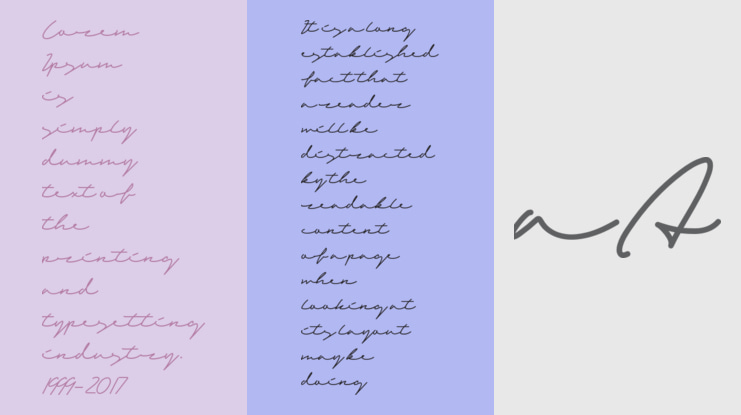 Lorem
Ipsum
is
simply
dummy
text of
the
printing
and
typesetting
industry.
1999-2017
It is a long
established
fact that
a reader
will be
distracted
by the
readable
content
of a page
when
looking at
its layout
maybe
doing
a A